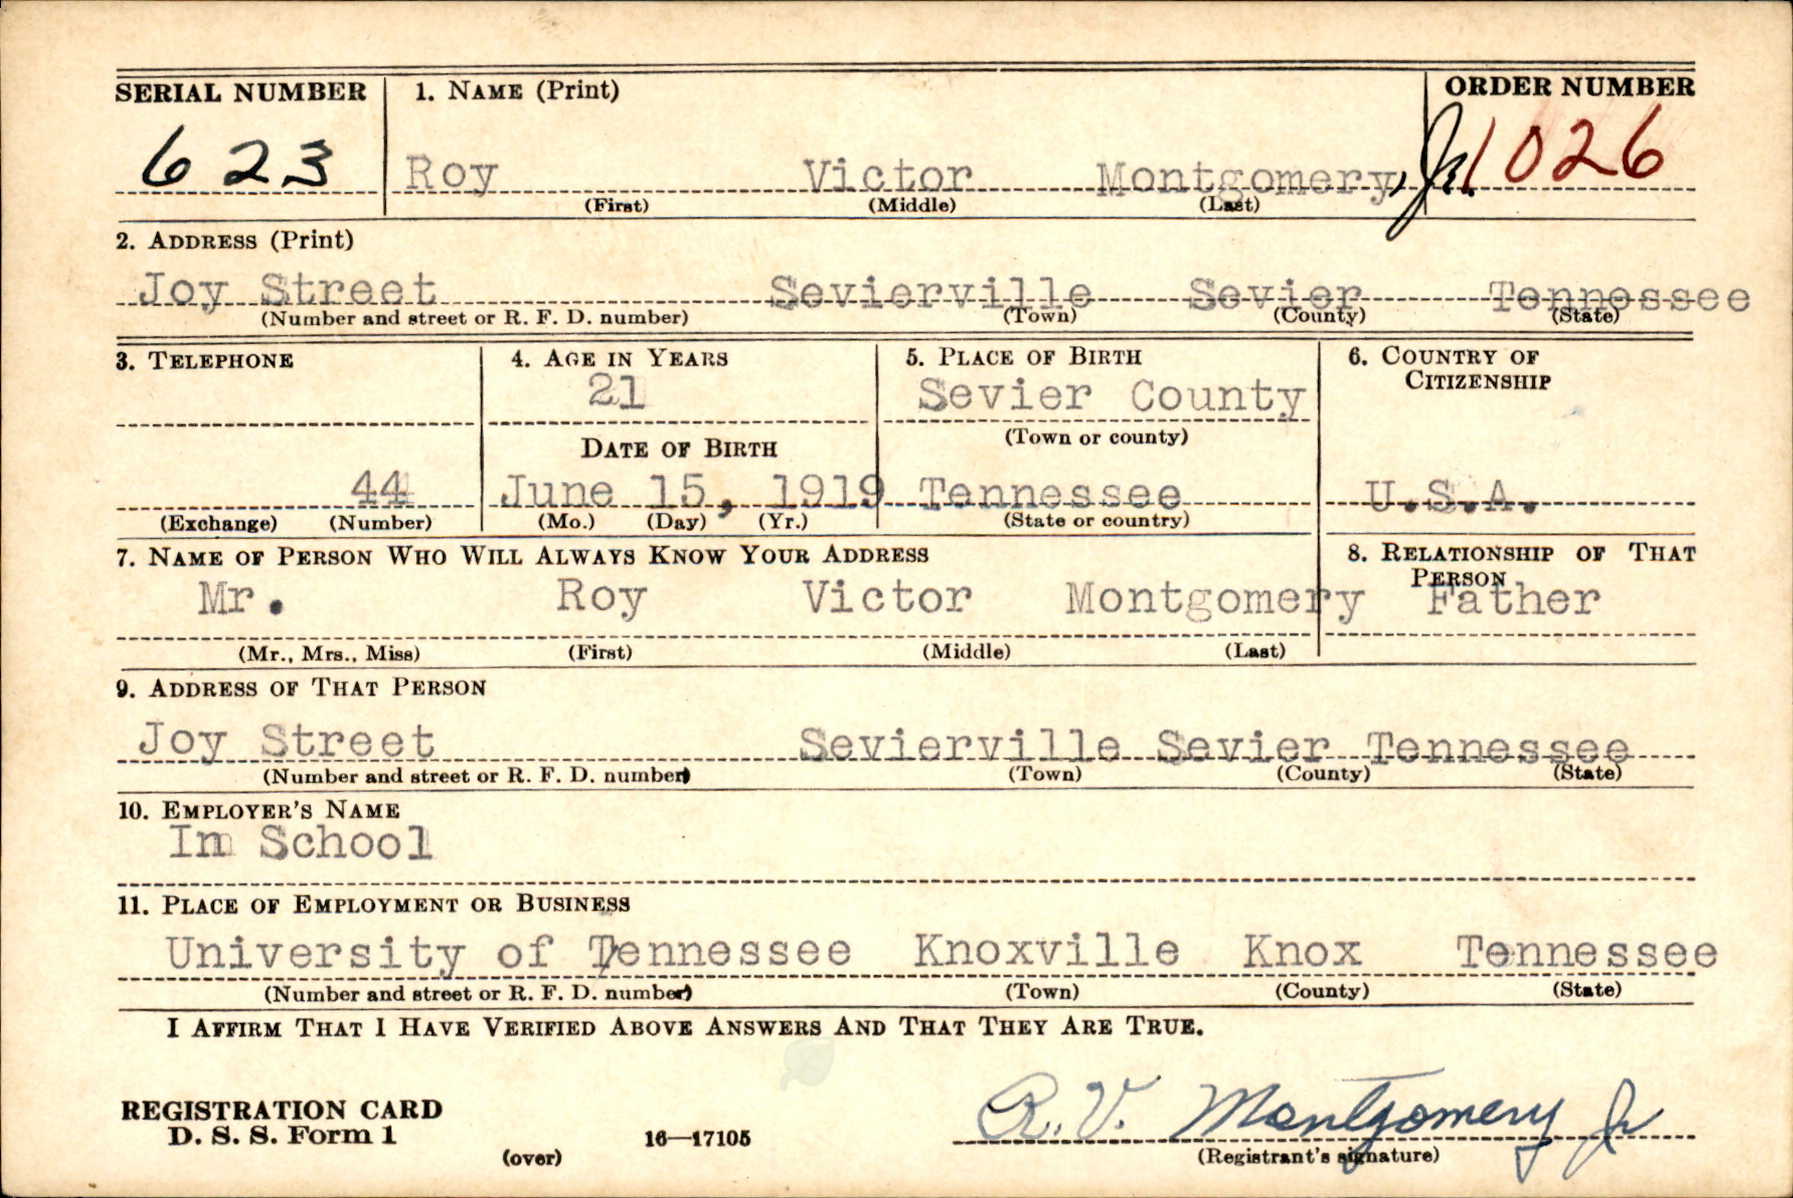 SERIAL NUMBER 1. NAME (Print) ORDER NUMBER
623 Roy Victor Montgomery, Jr. 1026
(First) (Middle) (Last)
2. ADDRESS (Print)
Joy Street Sevierville Sevier Tennessee
(Number and street or R. F. D. number) (Town) (County) (State)
3. TELEPHONE 4. AGE IN YEARS 5. PLACE OF BIRTH 6. COUNTRY OF
CITIZENSHIP
21 Sevier County
DATE OF BIRTH (Town or county)
44 June 15, 1919 Tennessee U.S.A.
(Exchange) (Number) (Mo.) (Day) (Yr.) (State or country)
7. NAME OF PERSON WHO WILL ALWAYS KNOW YOUR ADDRESS 8. RELATIONSHIP OF THAT
PERSON
Mr. Roy Victor Montgomery Father
(Mr., Mrs., Miss) (First) (Middle) (Last)
9. ADDRESS OF THAT PERSON
Joy Street Sevierville Sevier Tennessee
(Number and street or R. F. D. number) (Town) (County) (State)
10. EMPLOYER'S NAME
In School
11. PLACE OF EMPLOYMENT OR BUSINESS
University of Tennessee Knoxville Knox Tennessee
(Number and street or R. F. D. number) (Town) (County) (State)
I AFFIRM THAT I HAVE VERIFIED ABOVE ANSWERS AND THAT THEY ARE TRUE.
REGISTRATION CARD
D. S. S. Form 1 16—17105 R. V. Montgomery Jr
(over) (Registrant's signature)